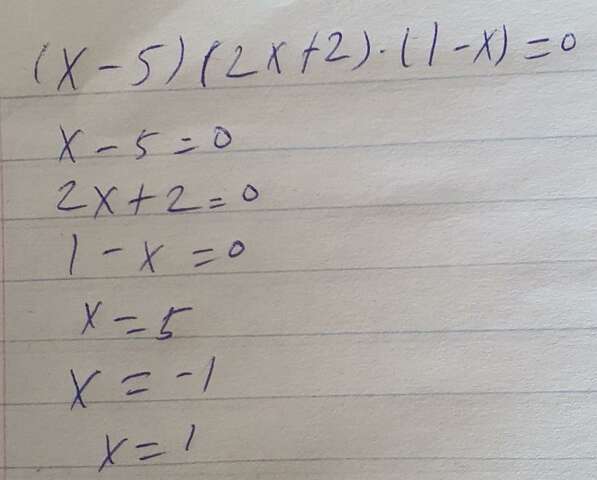 (x-5)(2x+2)·(1-x)=0
x-5=0
2x+2=0
1-x=0
x=5
x=-1
x=1